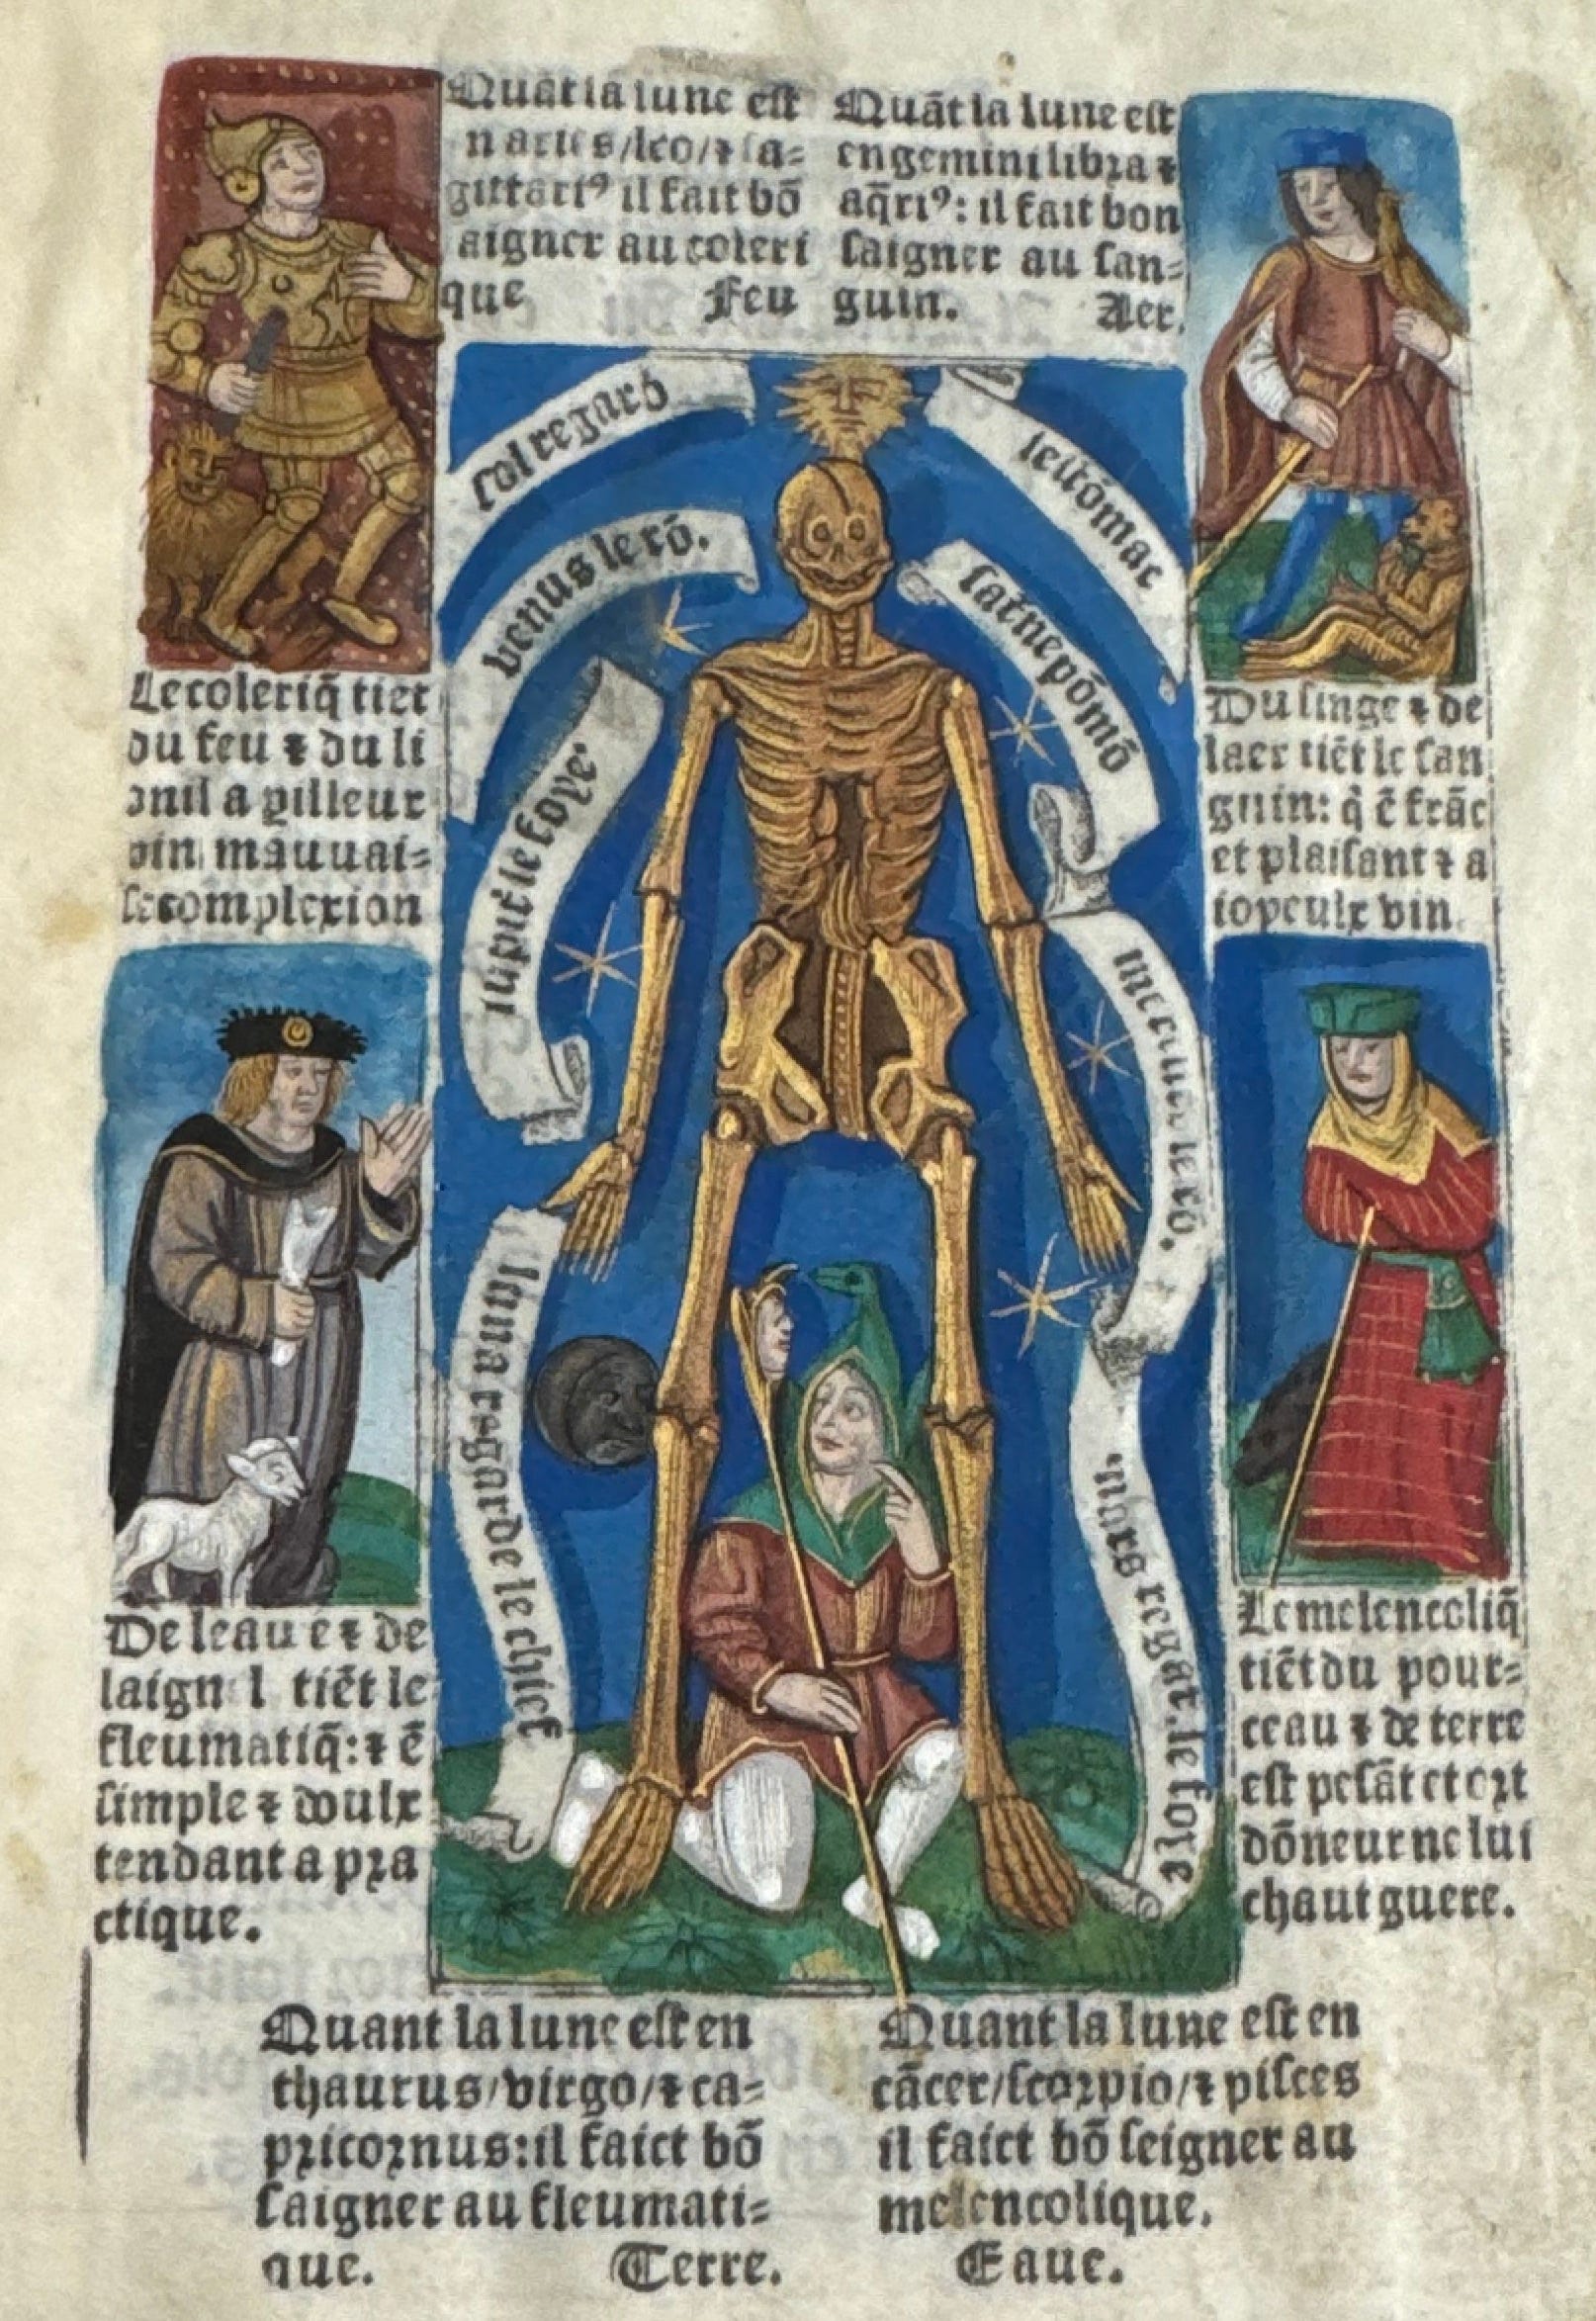 Quāt la lune est
n aries/leo/⁊ sa=
gittari⁹ il fait bō
aigner au coleri
que Feu
Quāt la lune est
en gemini libra ⁊
aq̄ri⁹: il fait bon
saigner au san=
guin. Aer.
sol regard
lestōmac
venus le rō.
satne pōmō
iupit le foye.
mercure le rō.
luna regarde le chief
mars regat. le foye
Le coleriq̄ tiēt
du feu ⁊ du li
onil a pilleur
vin mauuai=
se complexion
Du singe ⁊ de
laer tiēt le san
guin: q̄ ē frāc
et plaisant ⁊ a
ioyeulx vin.
De leaue ē ⁊ de
laign l tiēt le
fleumatiq̄: ⁊ ē
simple ⁊ doulx
tendant a pra
ctique.
Le melencoliq̄
tiēt du pour=
ceau ⁊ de terre
est pesāt et ort
dōneur ne lui
chaut guere.
Quant la lune est en
thaurus/virgo/⁊ ca=
pricornus: il faict bō
saigner au fleumati=
que. Terre.
Quant la lune est en
cācer/scorpio/⁊ pisces
il faict bō seigner au
melencolique.
Eaue.